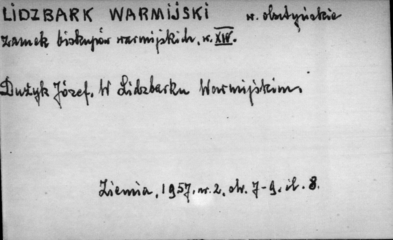 LIDZBARK WARMIJSKI w. olsztyńskie
zamek biskupów warmijskich, w. XIV.
Dużyk Józef. W Lidzbarku Warmijskim.
Ziemia, 1957. nr. 2. str. 7-9. il. 8.